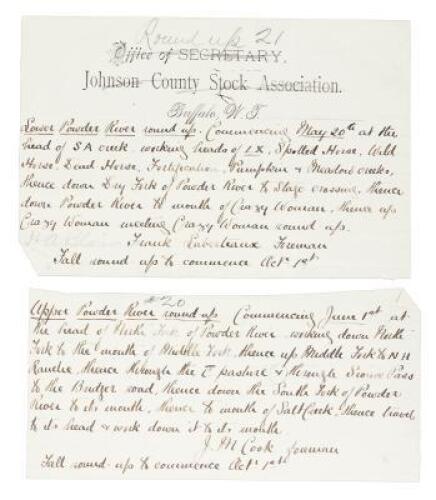 Round up 21
Office of SECRETARY.
Johnson County Stock Association.
Buffalo, W. T.
Lower Powder River round up. Commencing May 20th at the
head of S A creek working heads of L X, Spotted Horse, Wild
Horse, Dead Horse, Fortification, Pumpkin & Meadow creeks,
thence down Dry Fork of Powder River to Stage crossing, thence
down Powder River to mouth of Crazy Woman, thence up
Crazy Woman meeting Crazy Woman round up.
Frank Laberteaux Foreman
Fall round up to commence Oct 1st.
#20
Upper Powder River round up Commencing June 1st at
the head of North Fork of Powder River working down North
Fork to the mouth of Middle Fork, thence up Middle Fork to N H
Ranche, thence through the pasture & through Pass
to the Bridger road, thence down the South Fork of Powder
River to its mouth, thence to mouth of Salt Creek, thence travel
to its head & work down it to its mouth.
J. M Cook foreman
Fall round-up to commence Oct 1st